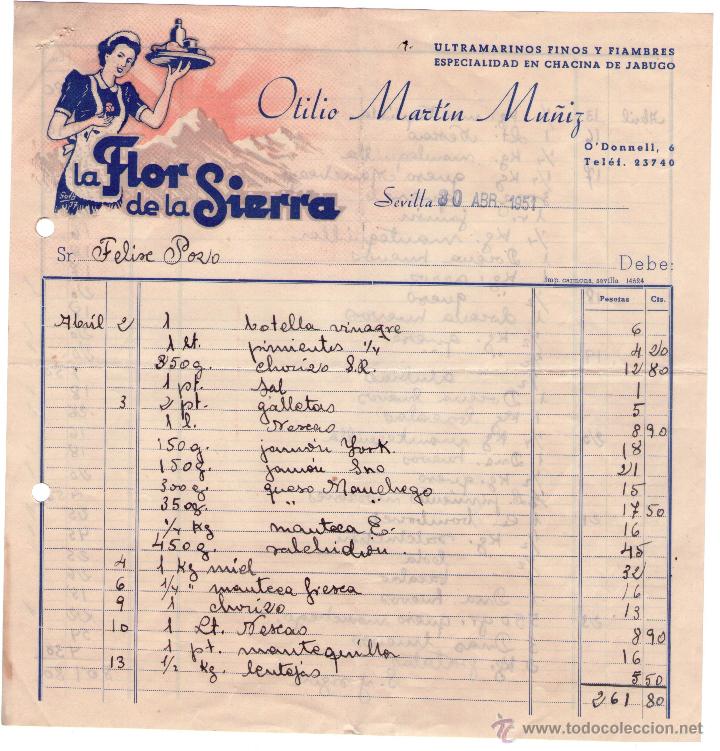 ULTRAMARINOS FINOS Y FIAMBRES
ESPECIALIDAD EN CHACINA DE JABUGO
Otilio Martín Muñiz
O'Donnell, 6
Teléf. 23740
La Flor
de la Sierra
Sevilla 30 ABR. 1951
Sr. Felixe Pozo Debe:
Imp. carmona, sevilla 14624
Pesetas Cts.
Abril 2 1 botella vinagre 6
1 lt. pimientos 1/4 4 20
350 g. chorizo S.R. 12 80
1 pt. sal 1
3 2 pt. galletas 5
1 l. Nescao 8 90
150 g. jamón York. 18
150 g. jamón Sno 21
300 g. queso Manchego 15
350 g. " " 17 50
1/4 kg manteca E. 16
450 g. salchichón. 45
4 1 Kg miel 32
6 1/4 " manteca fresca 16
9 1 chorizo 13
10 1 Lt. Nescao 8 90
1 pt. mantequilla 16
13 1/2 kg. lentejas 5 50
261 80
www.todocoleccion.net